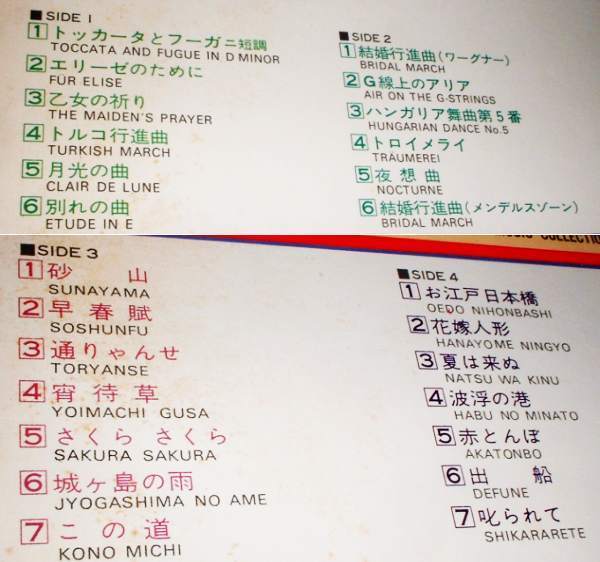 ■SIDE 1
1 トッカータとフーガニ短調
TOCCATA AND FUGUE IN D MINOR
2 エリーゼのために
FÜR ELISE
3 乙女の祈り
THE MAIDEN'S PRAYER
4 トルコ行進曲
TURKISH MARCH
5 月光の曲
CLAIR DE LUNE
6 別れの曲
ETUDE IN E
■SIDE 2
1 結婚行進曲(ワーグナー)
BRIDAL MARCH
2 G線上のアリア
AIR ON THE G-STRINGS
3 ハンガリア舞曲第5番
HUNGARIAN DANCE No.5
4 トロイメライ
TRÄUMEREI
5 夜想曲
NOCTURNE
6 結婚行進曲(メンデルスゾーン)
BRIDAL MARCH
■SIDE 3
1 砂山
SUNAYAMA
2 早春賦
SOSHUNFU
3 通りゃんせ
TORYANSE
4 宵待草
YOIMACHI GUSA
5 さくら さくら
SAKURA SAKURA
6 城ヶ島の雨
JYOGASHIMA NO AME
7 この道
KONO MICHI
■SIDE 4
1 お江戸日本橋
OEDO NIHONBASHI
2 花嫁人形
HANAYOME NINGYO
3 夏は来ぬ
NATSU WA KINU
4 波浮の港
HABU NO MINATO
5 赤とんぼ
AKATONBO
6 出船
DEFUNE
7 叱られて
SHIKARARETE